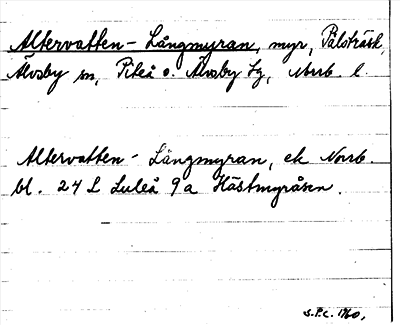 Altervatten - Långmyran, myr, Pålsträsk,
Älvsby sn, Piteå o. Älvsby tg, Norrb. l.
Altervatten - Långmyran, ek Norrb.
bl. 24 L Luleå 9a Hästmyråsen.
S.P.C. 1960.